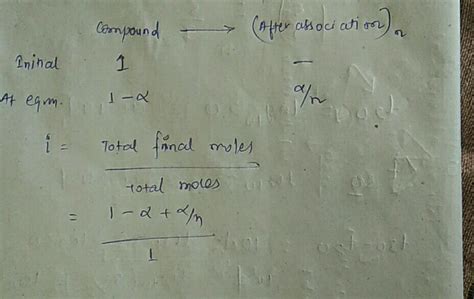 Compound ⟶ (After association)n
Ininal 1 —
At eqm. 1-α α/n
i = Total final moles
Total moles
= 1-α + α/n
1